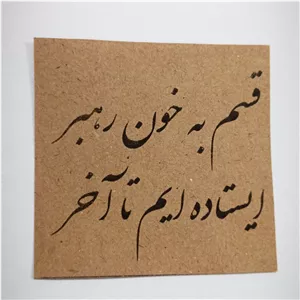 قسم به خون رهبر
ایستاده ایم تا آخر